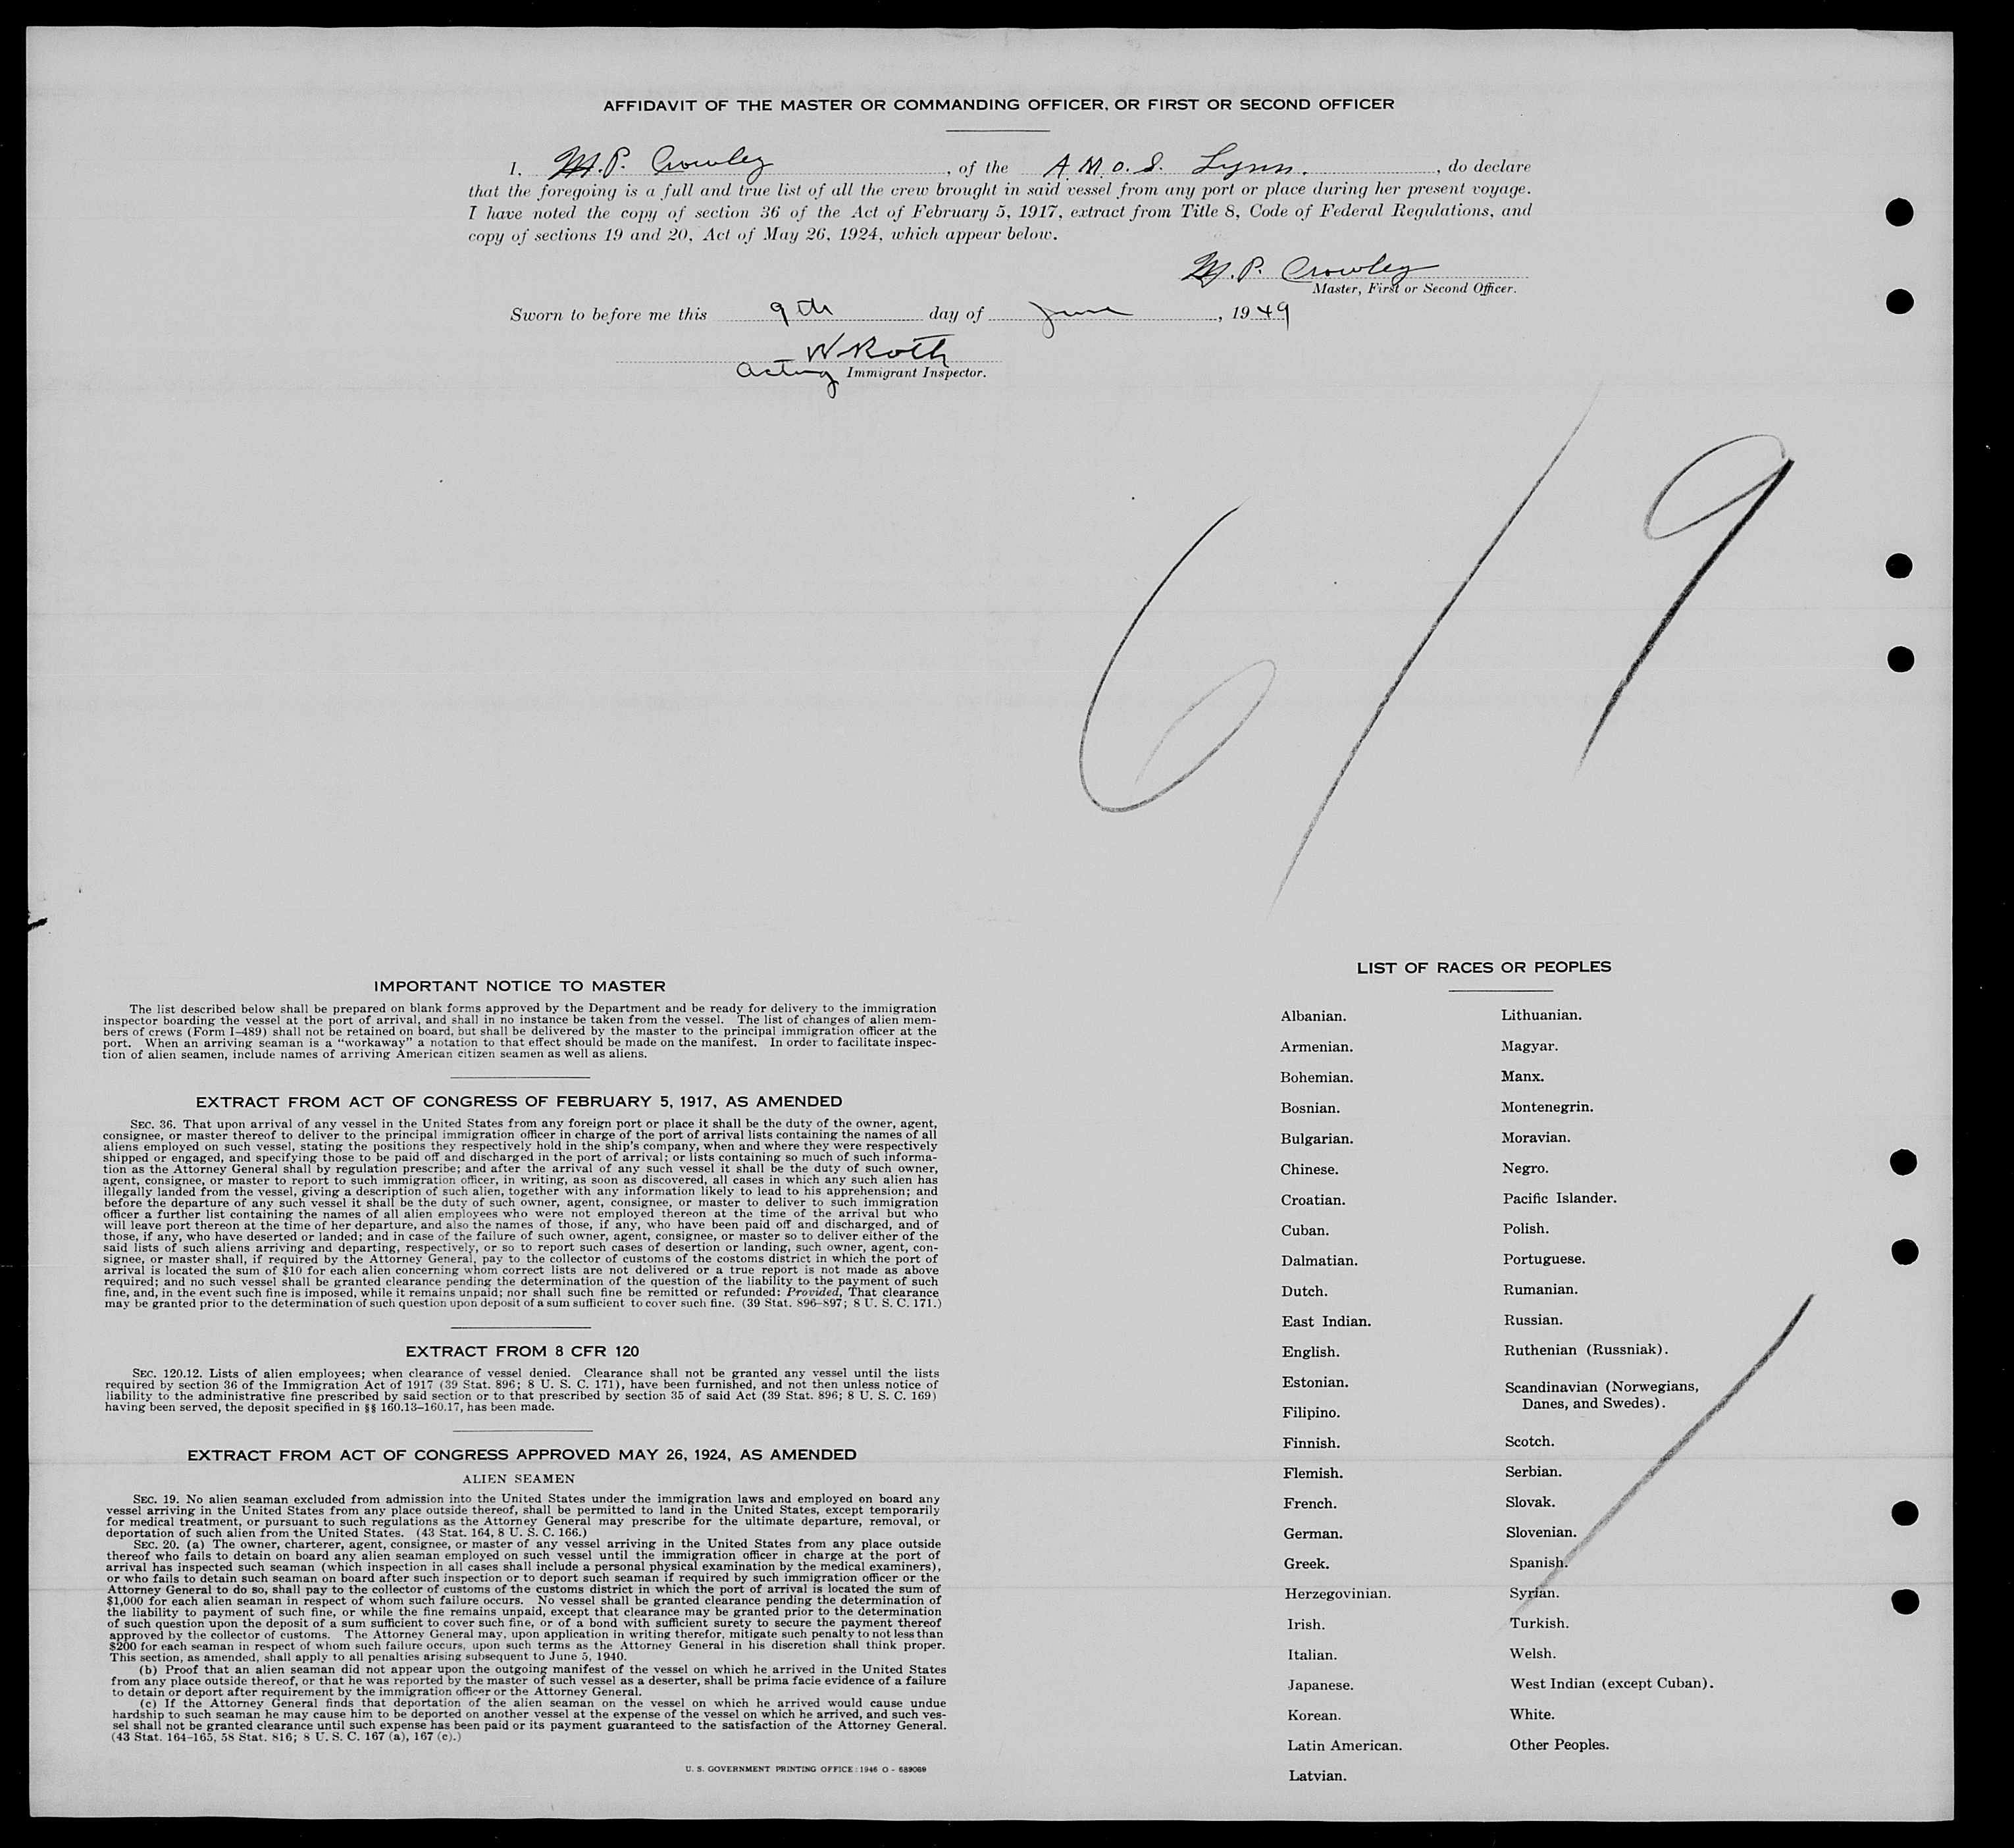 AFFIDAVIT OF THE MASTER OR COMMANDING OFFICER, OR FIRST OR SECOND OFFICER
I, M.P. Crowley, of the A.M.O.S. Lynn., do declare
that the foregoing is a full and true list of all the crew brought in said vessel from any port or place during her present voyage.
I have noted the copy of section 36 of the Act of February 5, 1917, extract from Title 8, Code of Federal Regulations, and
copy of sections 19 and 20, Act of May 26, 1924, which appear below.
M.P. Crowley
Master, First or Second Officer.
Sworn to before me this 9th day of June, 1949
W Roth
Acting Immigrant Inspector.
6/9
IMPORTANT NOTICE TO MASTER
The list described below shall be prepared on blank forms approved by the Department and be ready for delivery to the immigration
inspector boarding the vessel at the port of arrival, and shall in no instance be taken from the vessel. The list of changes of alien mem-
bers of crews (Form I-489) shall not be retained on board, but shall be delivered by the master to the principal immigration officer at the
port. When an arriving seaman is a "workaway" a notation to that effect should be made on the manifest. In order to facilitate inspec-
tion of alien seamen, include names of arriving American citizen seamen as well as aliens.
EXTRACT FROM ACT OF CONGRESS OF FEBRUARY 5, 1917, AS AMENDED
SEC. 36. That upon arrival of any vessel in the United States from any foreign port or place it shall be the duty of the owner, agent,
consignee, or master thereof to deliver to the principal immigration officer in charge of the port of arrival lists containing the names of all
aliens employed on such vessel, stating the positions they respectively hold in the ship's company, when and where they were respectively
shipped or engaged, and specifying those to be paid off and discharged in the port of arrival; or lists containing so much of such informa-
tion as the Attorney General shall by regulation prescribe; and after the arrival of any such vessel it shall be the duty of such owner,
agent, consignee, or master to report to such immigration officer, in writing, as soon as discovered, all cases in which any such alien has
illegally landed from the vessel, giving a description of such alien, together with any information likely to lead to his apprehension; and
before the departure of any such vessel it shall be the duty of such owner, agent, consignee, or master to deliver to such immigration
officer a further list containing the names of all alien employees who were not employed thereon at the time of the arrival but who
will leave port thereon at the time of her departure, and also the names of those, if any, who have been paid off and discharged, and of
those, if any, who have deserted or landed; and in case of the failure of such owner, agent, consignee, or master so to deliver either of the
said lists of such aliens arriving and departing, respectively, or so to report such cases of desertion or landing, such owner, agent, con-
signee, or master shall, if required by the Attorney General, pay to the collector of customs of the costoms district in which the port of
arrival is located the sum of $10 for each alien concerning whom correct lists are not delivered or a true report is not made as above
required; and no such vessel shall be granted clearance pending the determination of the question of the liability to the payment of such
fine, and, in the event such fine is imposed, while it remains unpaid; nor shall such fine be remitted or refunded: Provided, That clearance
may be granted prior to the determination of such question upon deposit of a sum sufficient to cover such fine. (39 Stat. 896-897; 8 U. S. C. 171.)
EXTRACT FROM 8 CFR 120
SEC. 120.12. Lists of alien employees; when clearance of vessel denied. Clearance shall not be granted any vessel until the lists
required by section 36 of the Immigration Act of 1917 (39 Stat. 896; 8 U. S. C. 171), have been furnished, and not then unless notice of
liability to the administrative fine prescribed by said section or to that prescribed by section 35 of said Act (39 Stat. 896; 8 U. S. C. 169)
having been served, the deposit specified in §§ 160.13-160.17, has been made.
EXTRACT FROM ACT OF CONGRESS APPROVED MAY 26, 1924, AS AMENDED
ALIEN SEAMEN
SEC. 19. No alien seaman excluded from admission into the United States under the immigration laws and employed on board any
vessel arriving in the United States from any place outside thereof, shall be permitted to land in the United States, except temporarily
for medical treatment, or pursuant to such regulations as the Attorney General may prescribe for the ultimate departure, removal, or
deportation of such alien from the United States. (43 Stat. 164, 8 U. S. C. 166.)
SEC. 20. (a) The owner, charterer, agent, consignee, or master of any vessel arriving in the United States from any place outside
thereof who fails to detain on board any alien seaman employed on such vessel until the immigration officer in charge at the port of
arrival has inspected such seaman (which inspection in all cases shall include a personal physical examination by the medical examiners),
or who fails to detain such seaman on board after such inspection or to deport such seaman if required by such immigration officer or the
Attorney General to do so, shall pay to the collector of customs of the customs district in which the port of arrival is located the sum of
$1,000 for each alien seaman in respect of whom such failure occurs. No vessel shall be granted clearance pending the determination of
the liability to payment of such fine, or while the fine remains unpaid, except that clearance may be granted prior to the determination
of such question upon the deposit of a sum sufficient to cover such fine, or of a bond with sufficient surety to secure the payment thereof
approved by the collector of customs. The Attorney General may, upon application in writing therefor, mitigate such penalty to not less than
$200 for each seaman in respect of whom such failure occurs, upon such terms as the Attorney General in his discretion shall think proper.
This section, as amended, shall apply to all penalties arising subsequent to June 5, 1940.
(b) Proof that an alien seaman did not appear upon the outgoing manifest of the vessel on which he arrived in the United States
from any place outside thereof, or that he was reported by the master of such vessel as a deserter, shall be prima facie evidence of a failure
to detain or deport after requirement by the immigration officer or the Attorney General.
(c) If the Attorney General finds that deportation of the alien seaman on the vessel on which he arrived would cause undue
hardship to such seaman he may cause him to be deported on another vessel at the expense of the vessel on which he arrived, and such ves-
sel shall not be granted clearance until such expense has been paid or its payment guaranteed to the satisfaction of the Attorney General.
(43 Stat. 164-165, 58 Stat. 816; 8 U. S. C. 167 (a), 167 (c).)
U. S. GOVERNMENT PRINTING OFFICE : 1946 O - 689069
LIST OF RACES OR PEOPLES
Albanian.
Armenian.
Bohemian.
Bosnian.
Bulgarian.
Chinese.
Croatian.
Cuban.
Dalmatian.
Dutch.
East Indian.
English.
Estonian.
Filipino.
Finnish.
Flemish.
French.
German.
Greek.
Herzegovinian.
Irish.
Italian.
Japanese.
Korean.
Latin American.
Latvian.
Lithuanian.
Magyar.
Manx.
Montenegrin.
Moravian.
Negro.
Pacific Islander.
Polish.
Portuguese.
Rumanian.
Russian.
Ruthenian (Russniak).
Scandinavian (Norwegians,
Danes, and Swedes).
Scotch.
Serbian.
Slovak.
Slovenian.
Spanish.
Syrian.
Turkish.
Welsh.
West Indian (except Cuban).
White.
Other Peoples.